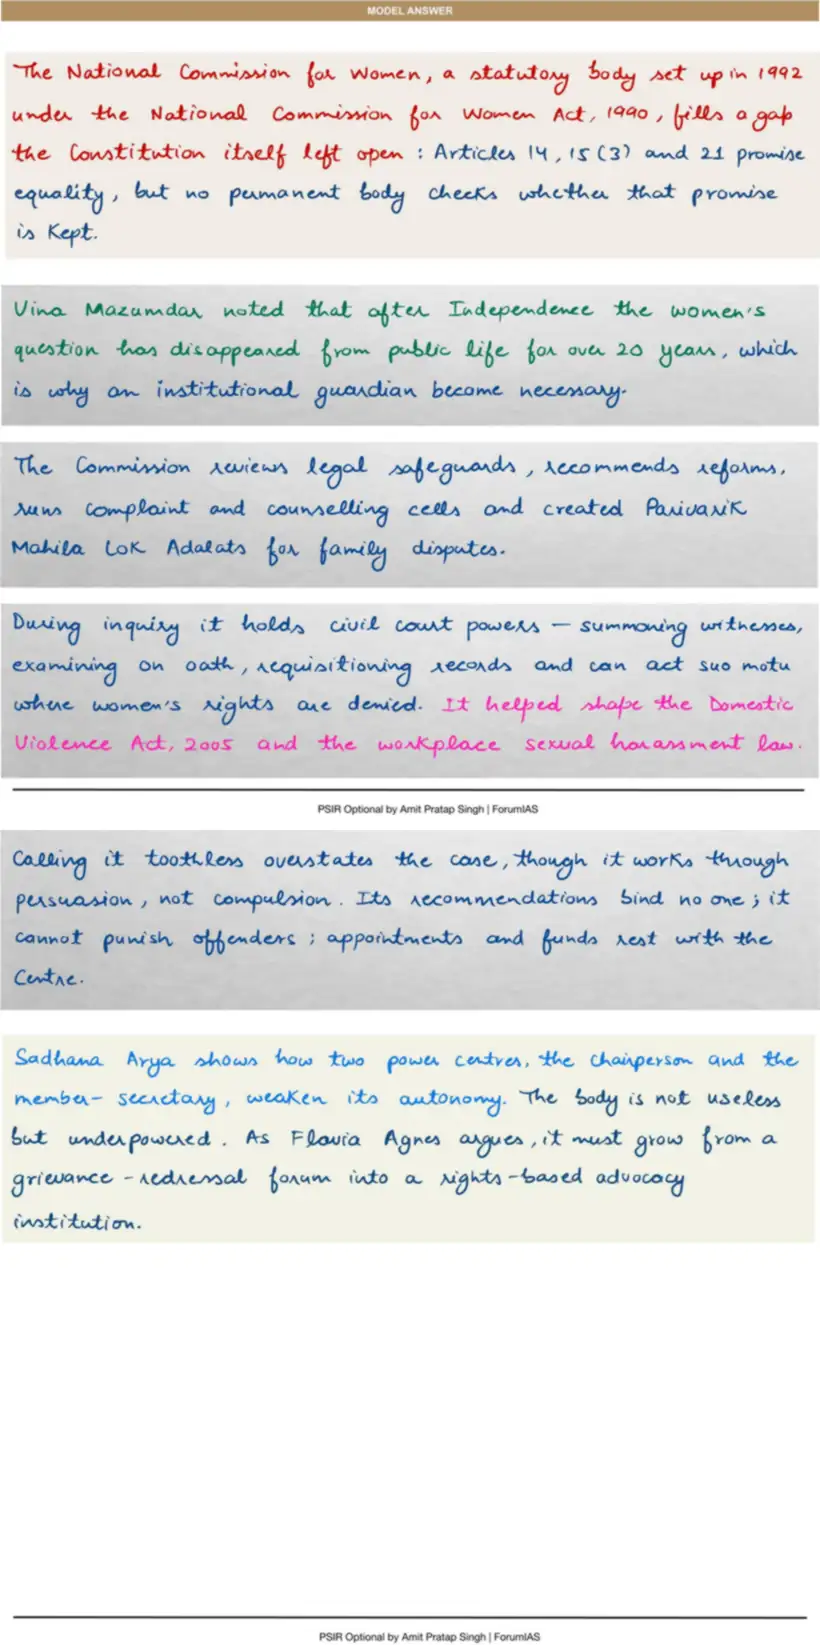 MODEL ANSWER
The National Commission for Women, a statutory body set up in 1992
under the National Commission for Women Act, 1990, fills a gap
the Constitution itself left open : Articles 14, 15(3) and 21 promise
equality, but no permanent body checks whether that promise
is Kept.
Vina Mazumdar noted that after Independence the women's
question has disappeared from public life for over 20 years, which
is why an institutional guardian became necessary.
The Commission reviews legal safeguards, recommends reforms,
runs complaint and counselling cells and created Parivarik
Mahila Lok Adalats for family disputes.
During inquiry it holds civil court powers – summoning witnesses,
examining on oath, requisitioning records and can act suo motu
where women's rights are denied. It helped shape the Domestic
Violence Act, 2005 and the workplace sexual harassment law.
PSIR Optional by Amit Pratap Singh | ForumIAS
Calling it toothless overstates the case, though it works through
persuasion, not compulsion. Its recommendations bind no one; it
cannot punish offenders; appointments and funds rest with the
Centre.
Sadhana Arya shows how two power centres, the chairperson and the
member-secretary, weaken its autonomy. The body is not useless
but underpowered. As Flavia Agnes argues, it must grow from a
grievance-redressal forum into a rights-based advocacy
institution.
PSIR Optional by Amit Pratap Singh | ForumIAS